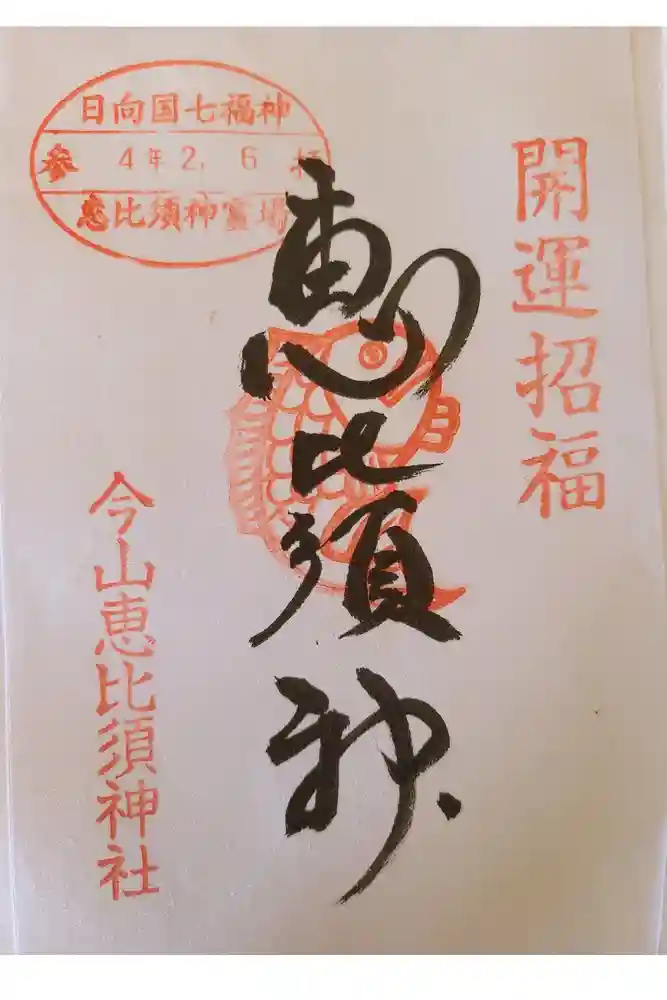 開運招福
恵比須神
日向国七福神
参 4年2.6 拝
恵比須神霊場
今山恵比須神社